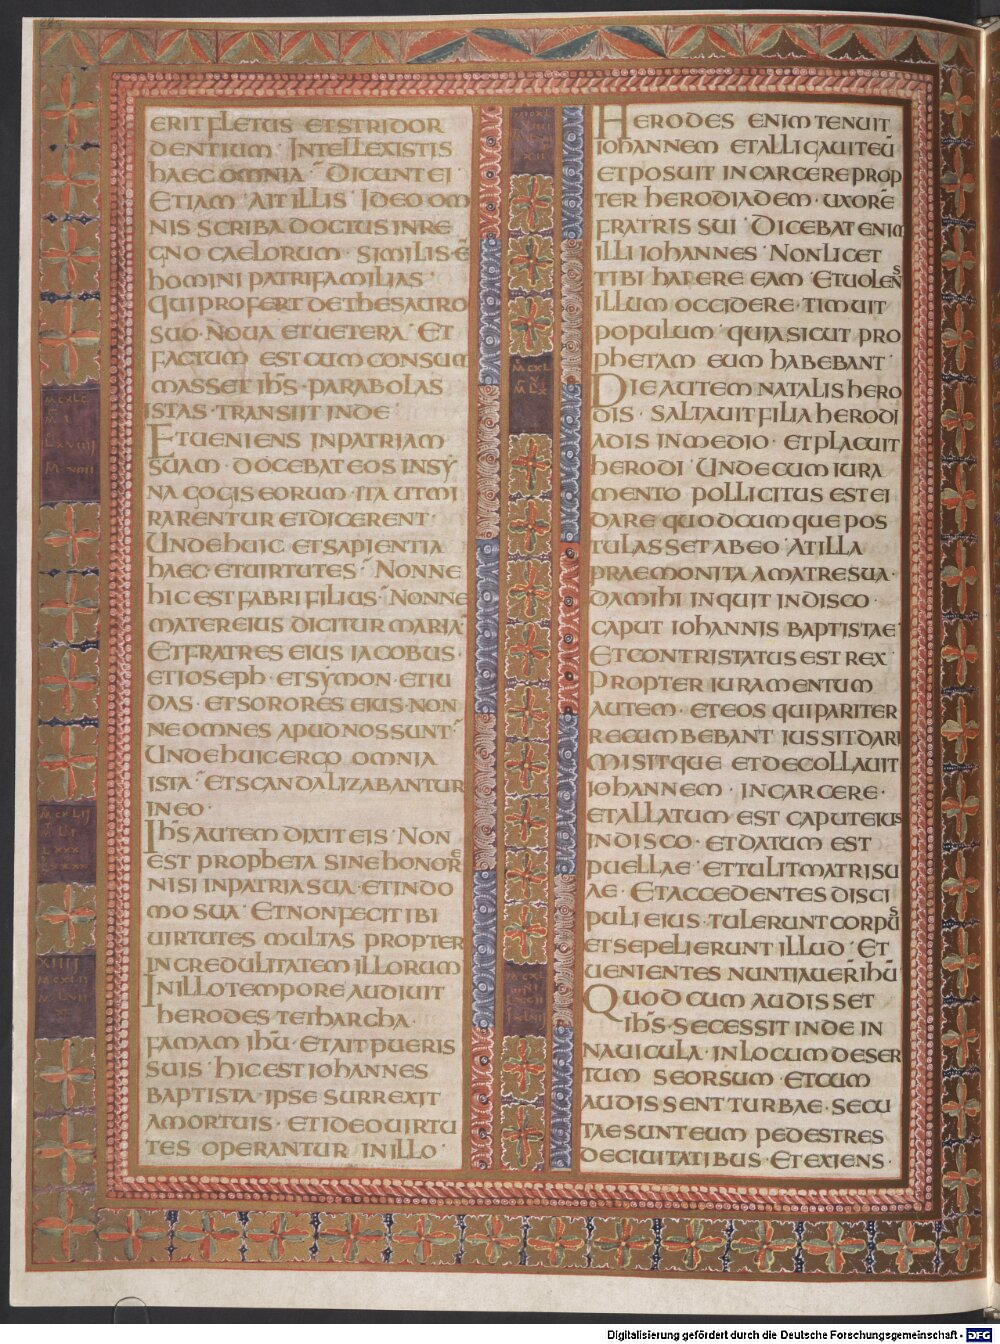 ERIT FLETUS ET STRIDOR
DENTIUM · INTELLEXISTIS
HAEC OMNIA · DICUNT EI
ETIAM · AIT ILLIS · IDEO OM
NIS SCRIBA DOCTUS IN RE
GNO CAELORUM · SIMILIS Ē
HOMINI PATRI FAMILIAS ·
QUI PROFERT DE THESAURO
SUO · NOUA ET UETERA · ET
FACTUM EST CUM CONSUM
MASSET IH̄S · PARABOLAS
ISTAS · TRANSIIT INDE
ET UENIENS IN PATRIAM
SUAM · DOCEBAT EOS IN SY
NAGOGIS EORUM · ITA UT MI
RARENTUR ET DICERENT ·
UNDE HUIC ET SAPIENTIA
HAEC ET UIRTUTES · NONNE
HIC EST FABRI FILIUS · NONNE
MATER EIUS DICITUR MARIA ·
ET FRATRES EIUS IACOBUS ·
ET IOSEPH · ET SYMON · ET IU
DAS · ET SORORES EIUS · NON
NE OMNES APUD NOS SUNT ·
UNDE HUIC ERGO OMNIA
ISTA · ET SCANDALIZABANTUR
IN EO ·
IH̄S AUTEM DIXIT EIS · NON
EST PROPHETA SINE HONORE
NISI IN PATRIA SUA · ET IN DO
MO SUA · ET NON FECIT IBI
UIRTUTES MULTAS PROPTER
INCREDULITATEM ILLORUM
IN ILLO TEMPORE AUDIUIT
HERODES TETHARCHA ·
FAMAM IH̄U · ET AIT PUERIS
SUIS · HIC EST IOHANNES
BAPTISTA · IPSE SURREXIT
A MORTUIS · ET IDEO UIRTU
TES OPERANTUR IN ILLO ·
HERODES ENIM TENUIT
IOHANNEM ET ALLIGAUIT EŪ
ET POSUIT IN CARCERE PROP
TER HERODIADEM · UXORĒ
FRATRIS SUI · DICEBAT ENIM
ILLI IOHANNES · NON LICET
TIBI HABERE EAM · ET UOLENS
ILLUM OCCIDERE · TIMUIT
POPULUM · QUIA SICUT PRO
PHETAM EUM HABEBANT ·
DIE AUTEM NATALIS HERO
DIS · SALTAUIT FILIA HERODI
ADIS IN MEDIO · ET PLACUIT
HERODI · UNDE CUM IURA
MENTO POLLICITUS EST EI
DARE QUODCUMQUE POS
TULASSET AB EO · AT ILLA
PRAEMONITA A MATRE SUA ·
DA MIHI INQUIT IN DISCO ·
CAPUT IOHANNIS BAPTISTAE ·
ET CONTRISTATUS EST REX
PROPTER IURAMENTUM
AUTEM · ET EOS QUI PARITER
RECUMBEBANT IUSSIT DARI
MISITQUE ET DECOLLAUIT
IOHANNEM · IN CARCERE ·
ET ALLATUM EST CAPUT EIUS
IN DISCO · ET DATUM EST
PUELLAE · ET TULIT MATRI SU
AE · ET ACCEDENTES DISCI
PULI EIUS · TULERUNT CORPUS
ET SEPELIERUNT ILLUD · ET
UENIENTES NUNTIAUER̄ IH̄U ·
QUOD CUM AUDISSET
IH̄S · SECESSIT INDE IN
NAUICULA · IN LOCUM DESER
TUM SEORSUM · ET CUM
AUDISSENT TURBAE · SECU
TAE SUNT EUM PEDESTRES
DE CIUITATIBUS · ET EXIENS ·
Digitalisierung gefördert durch die Deutsche Forschungsgemeinschaft - DFG